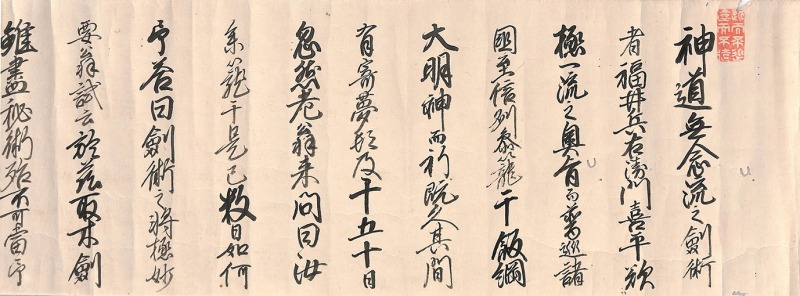 神道無念流之劔術
者福井兵右衛門喜平欲
極一流之奥旨而普巡諸
國至信州参籠于飯綱
大明神而祈既久其間
有奇夢及于五十日
忽然老翁来問曰汝
参籠于是已数日如何
予答曰劔術之将極妙
要翁試云於茲取木劔
雖盡秘術殆不可當予